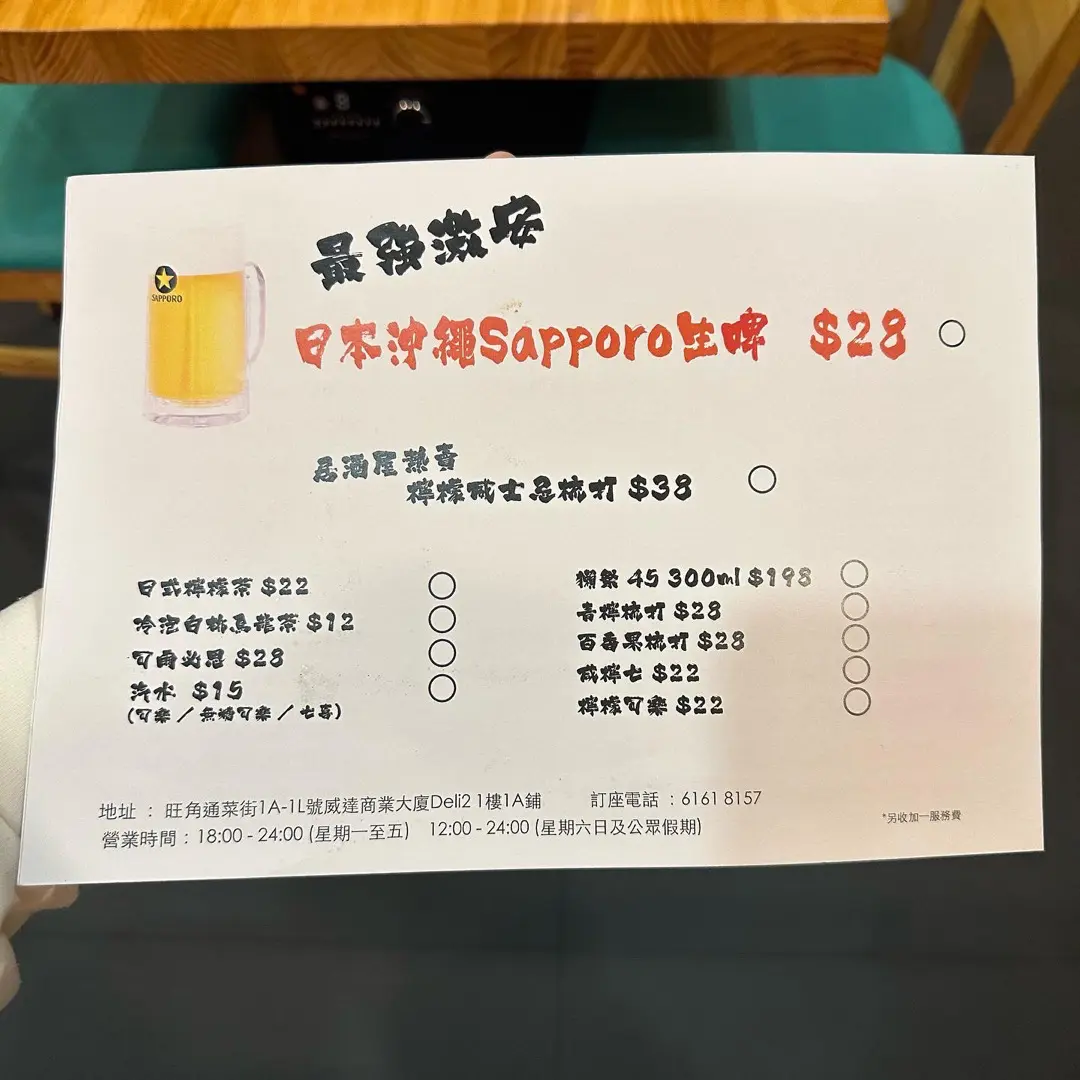 SAPPORO
最強激安
日本沖繩Sapporo生啤 $28
居酒屋熱賣
檸檬威士忌梳打 $38
日式檸檬茶 $22
冷泡白桃烏龍茶 $12
可爾必思 $28
汽水 $15
(可樂 / 無糖可樂 / 七喜)
獺祭 45 300ml $198
青檸梳打 $28
百香果梳打 $28
咸檸七 $22
檸檬可樂 $22
地址 : 旺角通菜街1A-1L號威達商業大廈Deli2 1樓1A鋪 訂座電話 : 6161 8157
營業時間 : 18:00 - 24:00 (星期一至五) 12:00 - 24:00 (星期六日及公眾假期)
*另收加一服務費